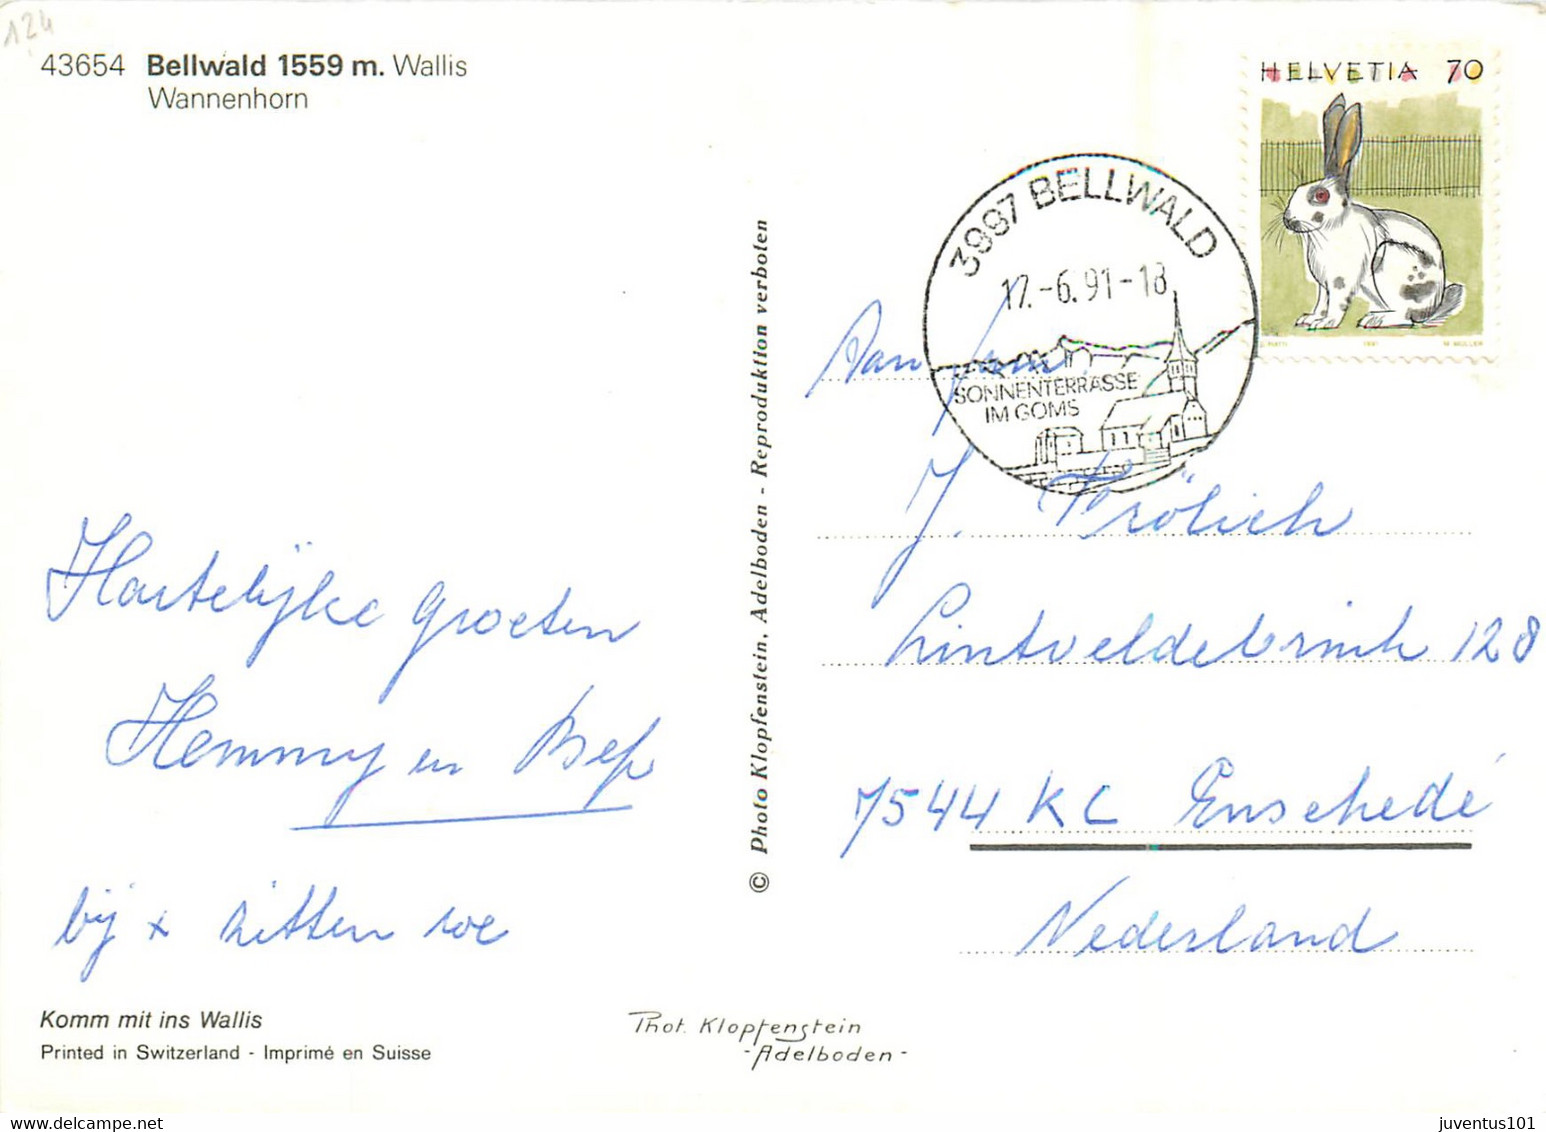 124
43654 Bellwald 1559 m. Wallis
Wannenhorn
HELVETIA 70
3997 BELLWALD
17.-6.91-18
SONNENTERRASSE
IM GOMS
Aan Fam.
J. Frölich
Lintveldebrink 128
7544 KC Enschedé
Nederland
Hartelijke groeten
Hemmy en Bep
bij x zitten we
© Photo Klopfenstein, Adelboden - Reproduktion verboten
Komm mit ins Wallis
Printed in Switzerland - Imprimé en Suisse
Phot. Klopfenstein
- Adelboden -
1991
M. MÜLLER
juventus101